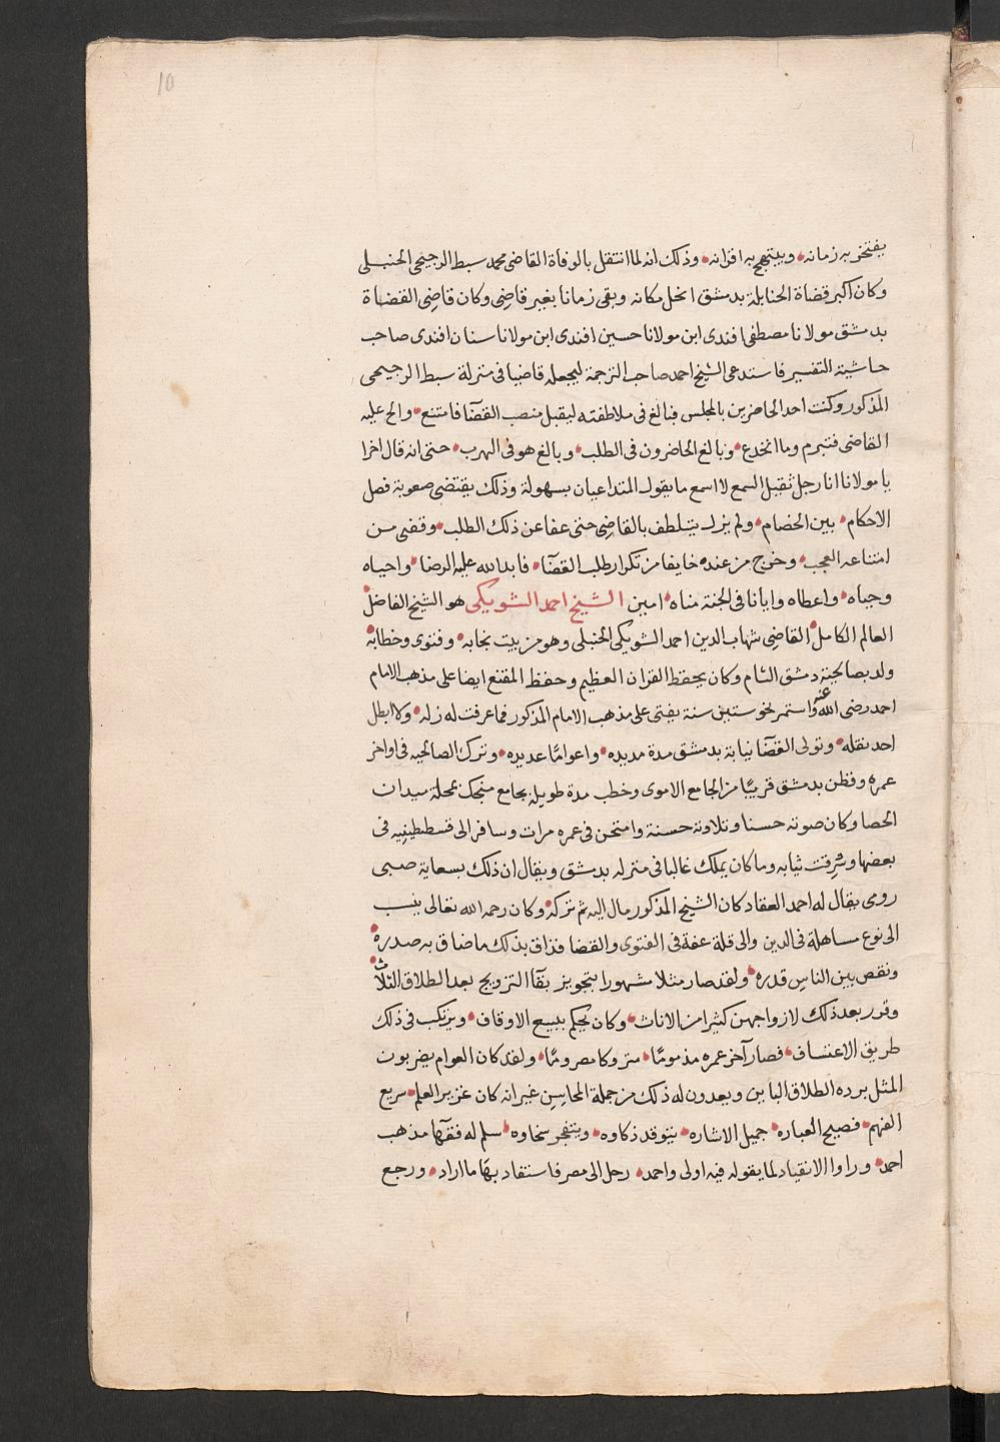 10
يفتخر به زمانه، ويبتهج به اقرانه، وذلك انه لما انتقل بالوفاة القاضى محمد سبط الرجيحى الحنبلى
وكان اكبر قضاة الحنابلة بدمشق انحل مكانه وبقى زمانا بغير قاضى وكان قاضى القضاة
بدمشق مولانا مصطفى افندى ابن مولانا حسين افندى ابن مولانا سنان افندى صاحب
حاشية التفسير فاستدعى الشيخ احمد صاحب الترجمة ليجعله قاضيا فى منزلة سبط الرجيحى
المذكور وكنت احد الحاضرين بالمجلس فبالغ فى ملاطفته ليقبل منصب القضآ فامتنع، والح عليه
القاضى فتبرم وما انخدع، وبالغ الحاضرون فى الطلب، وبالغ هو فى الهرب، حتى انه قال اخرا
يا مولانا انا رجل ثقيل السمع لا اسمع ما يقول المتداعيان بسهولة وذلك يقتضى صعوبة فصل
الاحكام، بين الخصام، ولم يزل يتلطف بالقاضى حتى عفا عن ذلك الطلب، وقضى من
امتناعه العجب، وخرج من عنده خايفا من تكرار طلب القضآ، فابدا لله عليه الرضا، واحياه
وحباه، واعطاه وايانا فى الجنة مناه، امين الشيخ احمد الشويكى هو الشيخ الفاضل،
العالم الكامل، القاضى شهاب الدين احمد الشويكى الحنبلى وهو من بيت نجابه، وفتوى وخطابه،
ولد بصالحية دمشق الشام وكان يحفظ القران العظيم وحفظ المقنع ايضا على مذهب الامام
احمد رضى الله عنه واستمر نحو ستين سنة يفتى على مذهب الامام المذكور فما عرفت له زله، ولا ابطل
احد نقله، وتولى القضآ نيابة بدمشق مدة مديده، واعوامًا عديده، وترك الصالحيه فى اواخر
عمره وقطن بدمشق قريبًا من الجامع الاموى وخطب مدة طويلة بجامع منجك بمحلة ميدان
الحصا وكان صوته حسنا وتلاوته حسنة وامتحن فى عمره مرات وسافر الى قسطنطينيه فى
بعضها وسرقت ثيابه وما كان يملك غالبا فى منزله بدمشق ويقال ان ذلك بسعاية صبى
رومى يقال له احمد العقاد كان الشيخ المذكور مال اليه ثم تركه، وكان رحمه الله تعالى ينسب
الى نوع مساهلة فى الدين والى قلة عفة فى الفتوى والقضا فذاق بذلك ما ضاق به صدره،
ونقص بين الناس قدره، ولقد صار مثلا مشهورا بتجويز بقآ التزويج بعد الطلاق الثلاث،
وقرر بعد ذلك لازواجهن كثيرا من الاناث، وكان يحكم ببيع الاوقاف، ويرتكب فى ذلك
طريق الاعتساف، فصار آخر عمره مذمومًا، متروكا مصرومًا، ولقد كان العوام يضربون
المثل برده الطلاق الباين ويعدون له ذلك من جملة المحاسن غير انه كان غزير العلم، سريع
الفهم، فصيح العباره، جميل الاشاره، يتوقد ذكاوه، ويتفجر سخاوه، سلم له فقهآ مذهب
احمد، وراوا الانقياد لما يقوله فيه اولى واحمد، رحل الى مصر فاستفاد بها ما اراد، ورجع